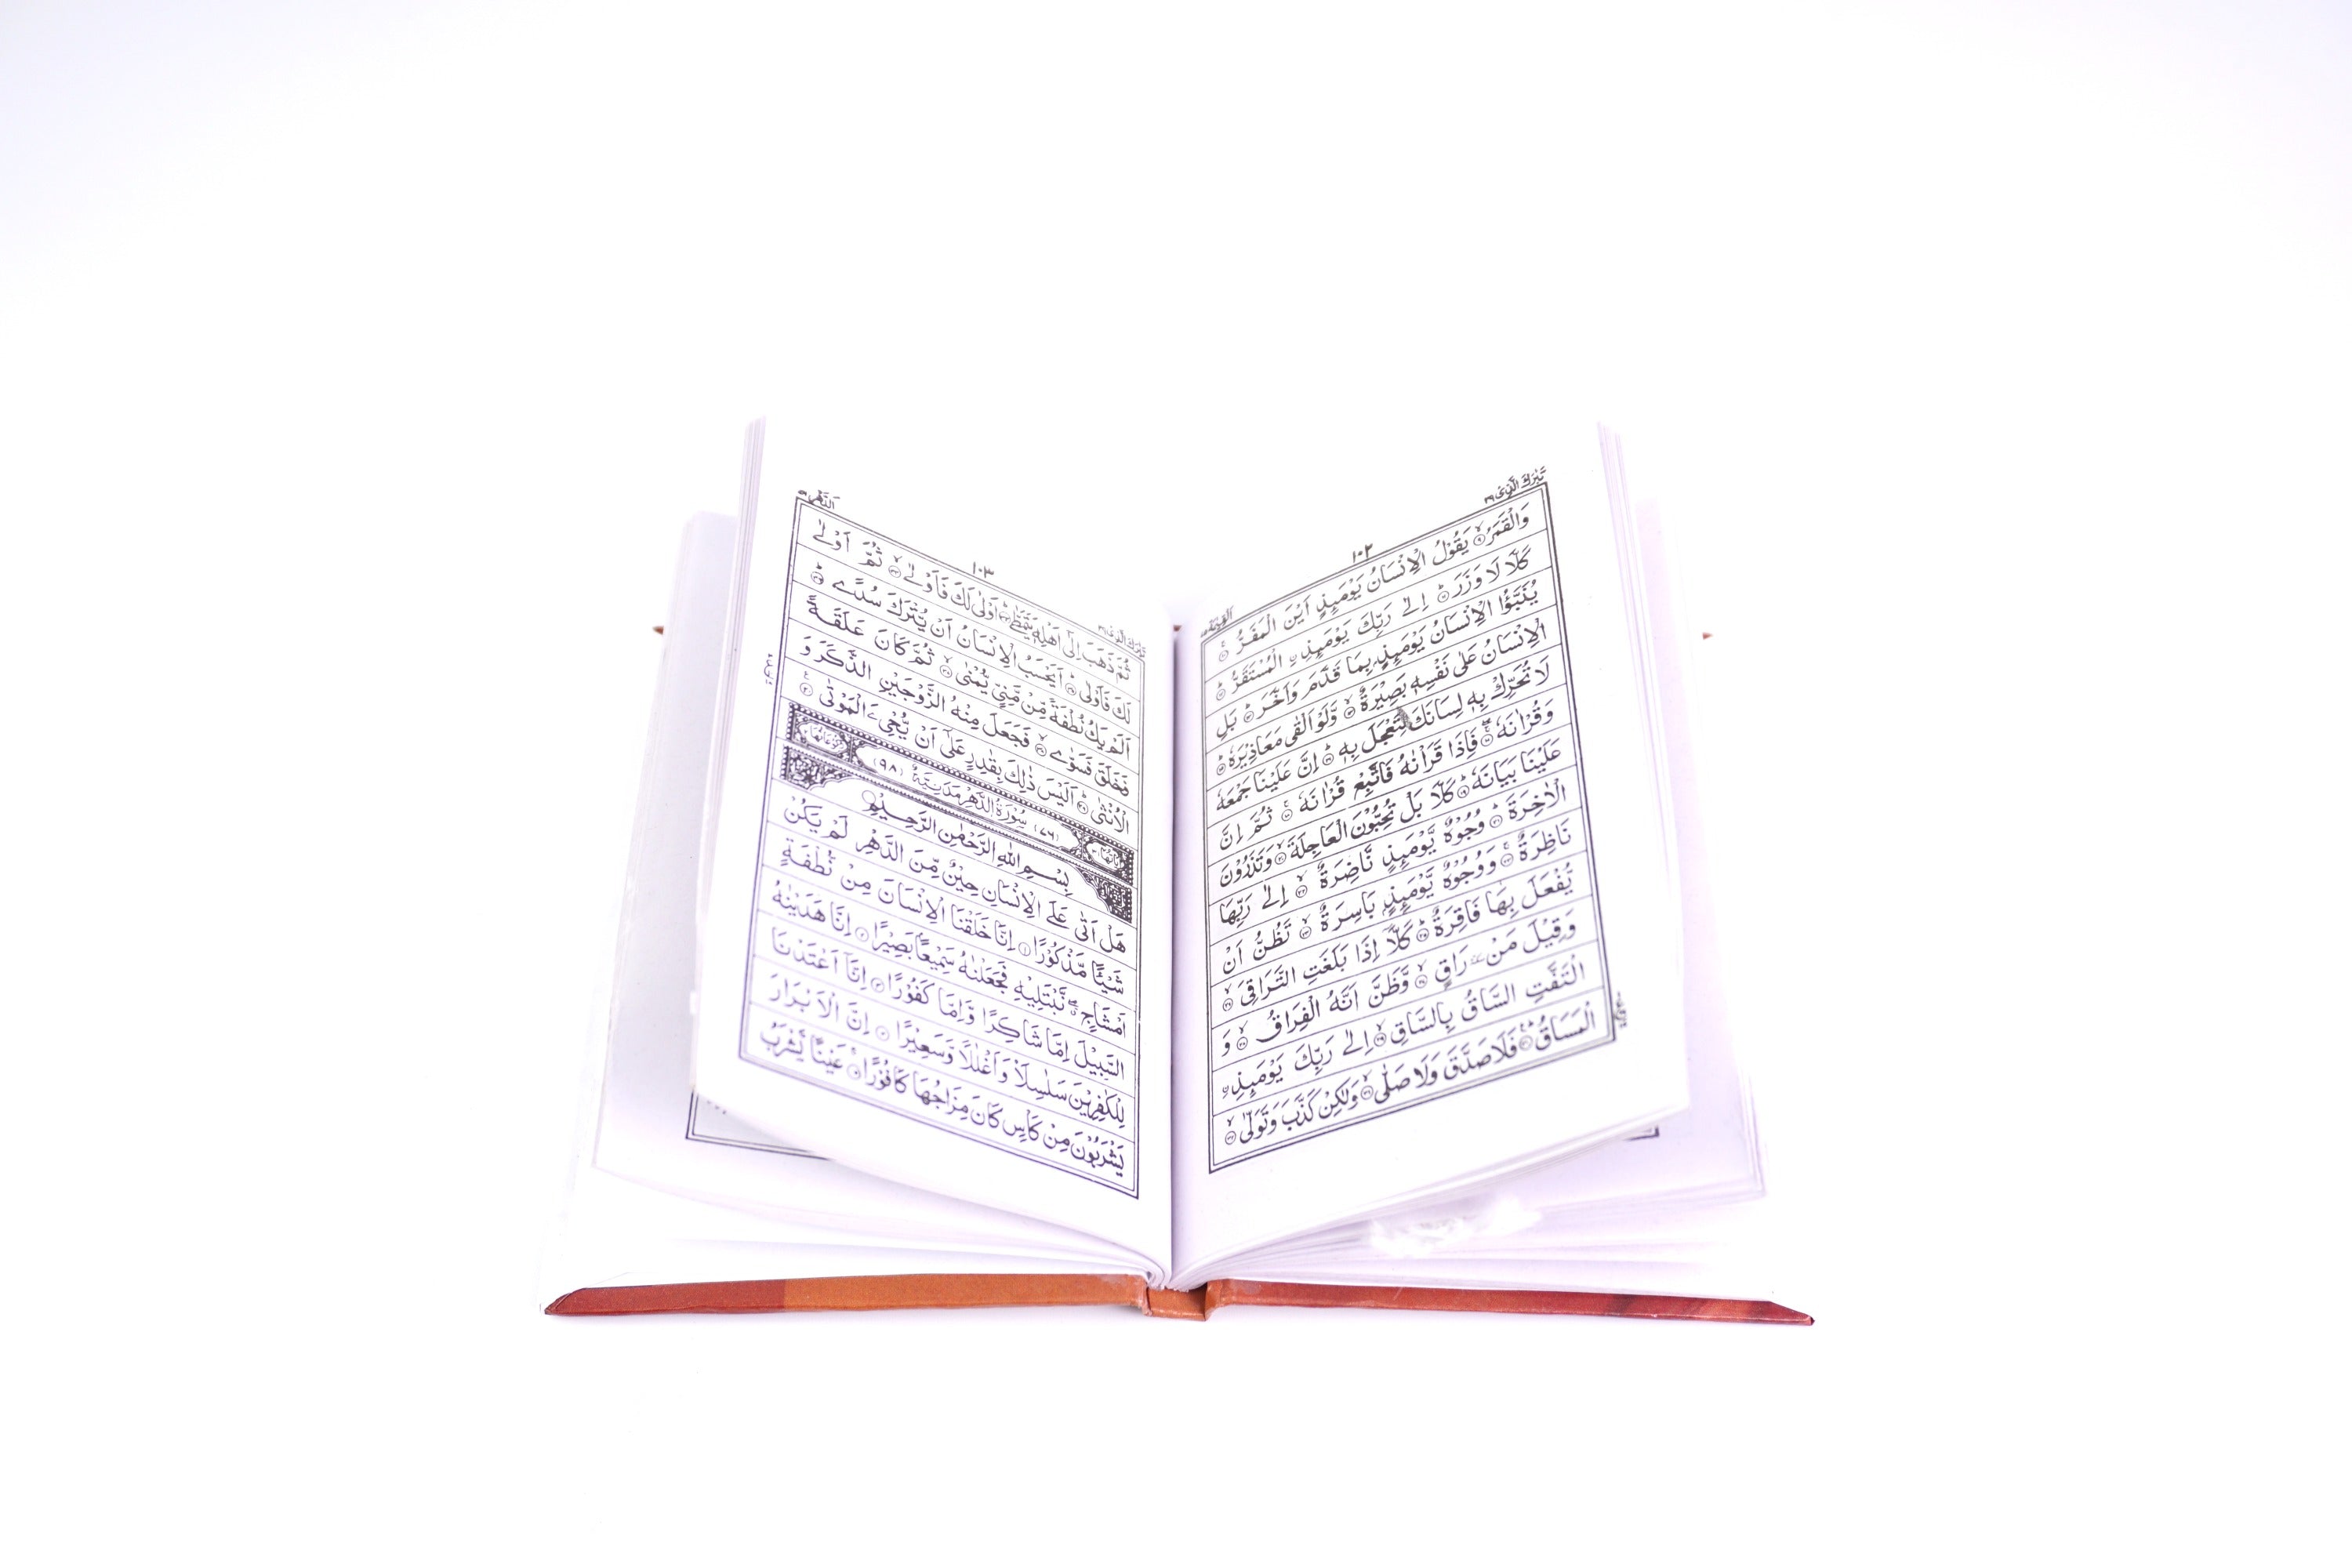 تَبٰرَكَ الَّذِىْ ٢٩
١٠٢
اَلْقِيٰمَة
وَالْقَمَرُ ۙ٩ يَقُوْلُ الْاِنْسَانُ يَوْمَئِذٍ اَيْنَ الْمَفَرُّ ۚ١٠
كَلَّا لَا وَزَرَ ؕ١١ اِلٰى رَبِّكَ يَوْمَئِذِ ۨ الْمُسْتَقَرُّ ؕ١٢
يُنَبَّؤُا الْاِنْسَانُ يَوْمَئِذٍۭ بِمَا قَدَّمَ وَاَخَّرَ ؕ١٣ بَلِ
الْاِنْسَانُ عَلٰى نَفْسِهٖ بَصِيْرَةٌ ۙ١٤ وَّلَوْ اَلْقٰى مَعَاذِيْرَهٗ ؕ١٥
لَا تُحَرِّكْ بِهٖ لِسَانَكَ لِتَعْجَلَ بِهٖ ؕ١٦ اِنَّ عَلَيْنَا جَمْعَهٗ
وَقُرْاٰنَهٗ ۚۖ١٧ فَاِذَا قَرَاْنٰهُ فَاتَّبِعْ قُرْاٰنَهٗ ۚ١٨ ثُمَّ اِنَّ
عَلَيْنَا بَيَانَهٗ ؕ١٩ كَلَّا بَلْ تُحِبُّوْنَ الْعَاجِلَةَ ۙ٢٠ وَتَذَرُوْنَ
الْاٰخِرَةَ ؕ٢١ وُجُوْهٌ يَّوْمَئِذٍ نَّاضِرَةٌ ۙ٢٢ اِلٰى رَبِّهَا
نَاظِرَةٌ ۚ٢٣ وَوُجُوْهٌ يَّوْمَئِذٍۭ بَاسِرَةٌ ۙ٢٤ تَظُنُّ اَنْ
يُّفْعَلَ بِهَا فَاقِرَةٌ ؕ٢٥ كَلَّاۤ اِذَا بَلَغَتِ التَّرَاقِىَ ۙ٢٦
وَقِيْلَ مَنْ ٚ رَاقٍ ۙ٢٧ وَّظَنَّ اَنَّهُ الْفِرَاقُ ۙ٢٨ وَ
الْتَفَّتِ السَّاقُ بِالسَّاقِ ۙ٢٩ اِلٰى رَبِّكَ يَوْمَئِذِ ۨ
الْمَسَاقُ ؕ٣٠ فَلَا صَدَّقَ وَلَا صَلّٰى ۙ٣١ وَلٰكِنْ كَذَّبَ وَتَوَلّٰى ۙ٣٢
تَبٰرَكَ الَّذِىْ ٢٩
١٠٣
اَلدَّهْر
ثُمَّ ذَهَبَ اِلٰٓى اَهْلِهٖ يَتَمَطّٰى ؕ٣٣ اَوْلٰى لَكَ فَاَوْلٰى ۙ٣٤ ثُمَّ اَوْلٰى
لَكَ فَاَوْلٰى ؕ٣٥ اَيَحْسَبُ الْاِنْسَانُ اَنْ يُّتْرَكَ سُدًى ؕ٣٦
اَلَمْ يَكُ نُطْفَةً مِّنْ مَّنِىٍّ يُّمْنٰى ۙ٣٧ ثُمَّ كَانَ عَلَقَةً
فَخَلَقَ فَسَوّٰى ۙ٣٨ فَجَعَلَ مِنْهُ الزَّوْجَيْنِ الذَّكَرَ وَ
الْاُنْثٰى ؕ٣٩ اَلَيْسَ ذٰلِكَ بِقٰدِرٍ عَلٰٓى اَنْ يُّحْیِۦَ الْمَوْتٰى ۠٤٠
(٧٦) سُوْرَةُ الدَّهْرِ مَدَنِيَّةٌ (٩٨)
بِسْمِ اللهِ الرَّحْمٰنِ الرَّحِيْمِ
هَلْ اَتٰى عَلَى الْاِنْسَانِ حِيْنٌ مِّنَ الدَّهْرِ لَمْ يَكُنْ
شَيْئًا مَّذْكُوْرًا ١ اِنَّا خَلَقْنَا الْاِنْسَانَ مِنْ نُّطْفَةٍ
اَمْشَاجٍ ۖ نَّبْتَلِيْهِ فَجَعَلْنٰهُ سَمِيْعًۢا بَصِيْرًا ٢ اِنَّا هَدَيْنٰهُ
السَّبِيْلَ اِمَّا شَاكِرًا وَّاِمَّا كَفُوْرًا ٣ اِنَّاۤ اَعْتَدْنَا
لِلْكٰفِرِيْنَ سَلٰسِلَا۟ وَاَغْلٰلًا وَّسَعِيْرًا ٤ اِنَّ الْاَبْرَارَ
يَشْرَبُوْنَ مِنْ كَاْسٍ كَانَ مِزَاجُهَا كَافُوْرًا ۚ٥ عَيْنًا يَّشْرَبُ